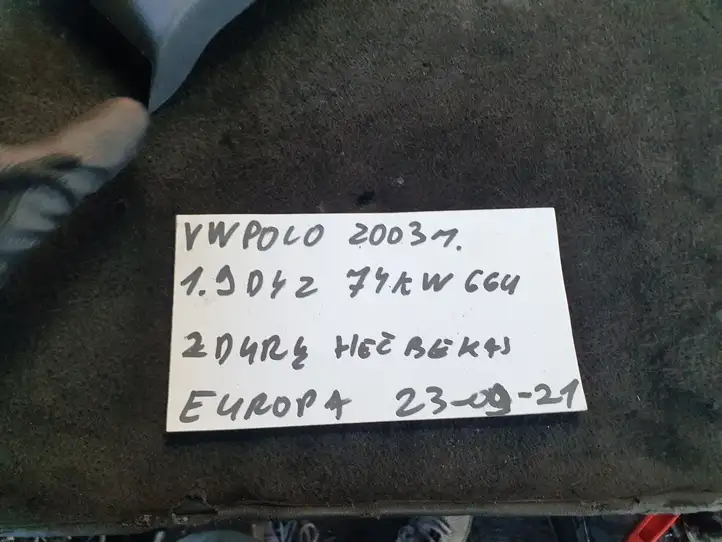 VW POLO 2003m.
1.9 DYZ 74KW 6GU
2 DURŲ HEČBEKAS
EUROPA 23-09-21